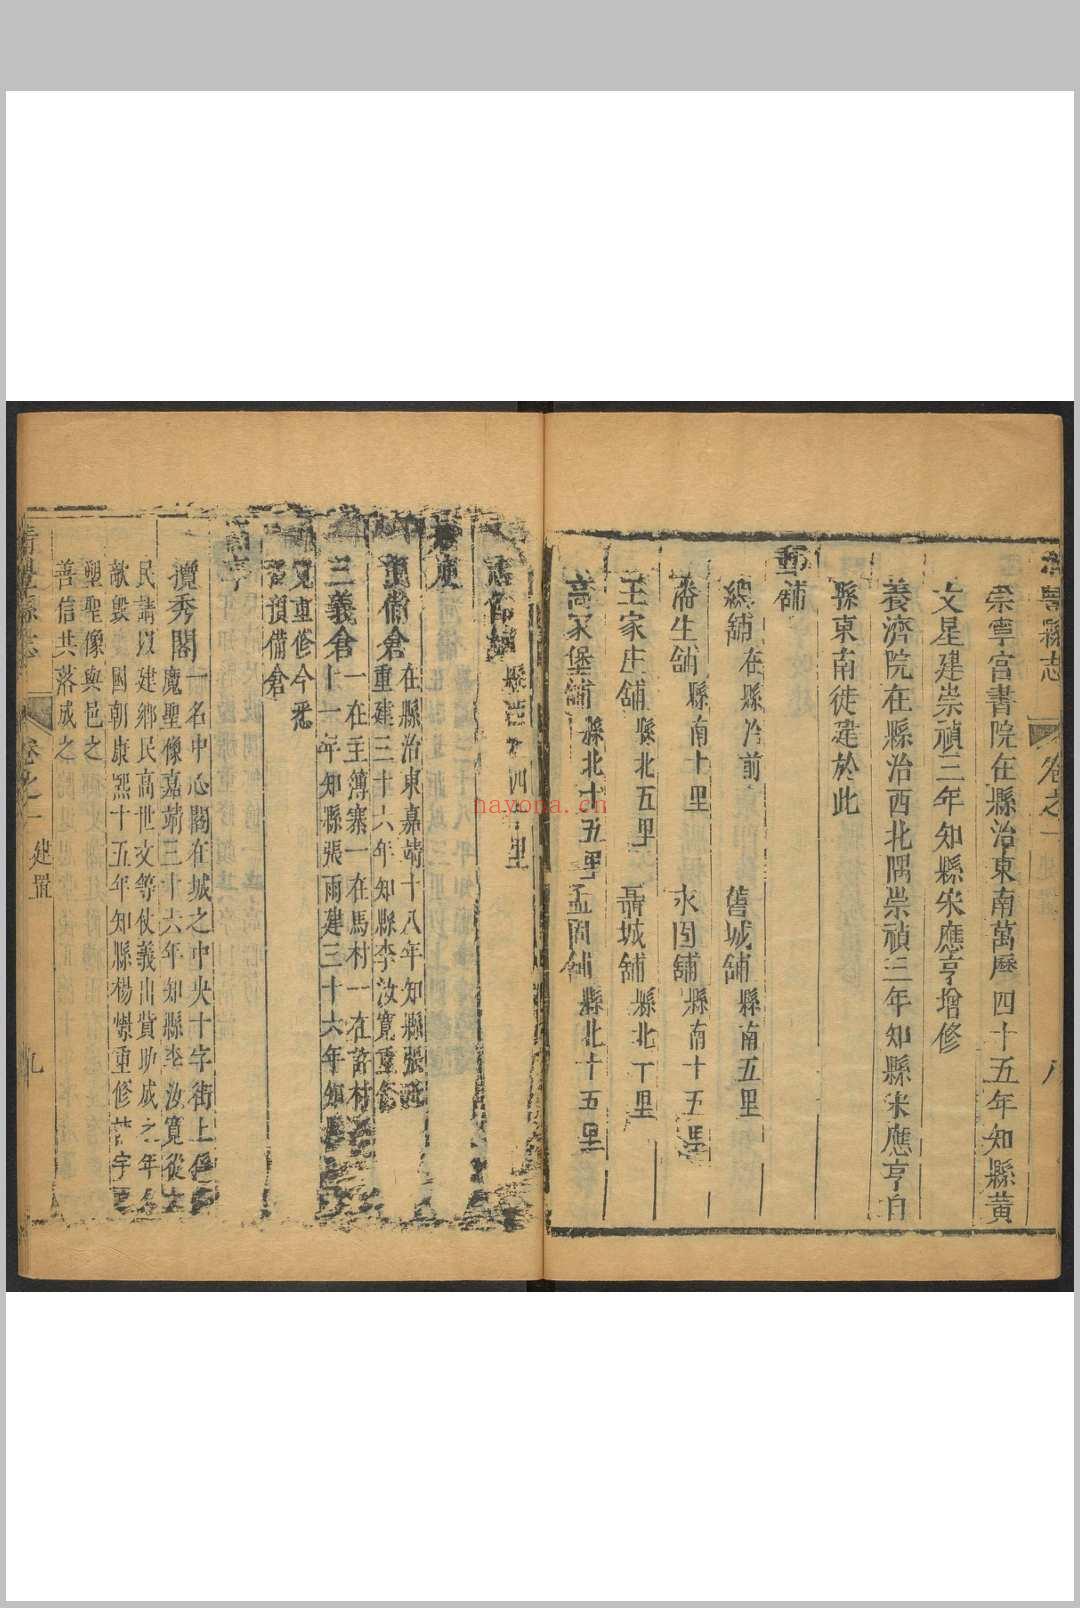 豐縣志 卷之一
崇寧宮書院在縣治東南萬曆四十五年知縣黃
文星建崇禎三年知縣宋應亨增修
養濟院在縣治西北隅崇禎三年知縣宋應亨自
縣東南徒建於此
舖
總舖在縣治前 舊城舖縣南五里
潘生舖縣南十里 永固舖縣南十五里
王家庄舖縣北五里 聶城舖縣北十里
高家堡舖縣北十五里 孟固舖縣北十五里
四 里
預備倉在縣治東嘉靖十八年知縣張
重建三十六年知縣李汝寬重修
三義倉一在主簿寨一在馬村一在許村
十一年知縣張雨建三十六年知縣
又重修今悉
預備倉
亭
攬秀閣一名中心閣在城之中央十字街上
魔聖像嘉靖三十六年知縣李汝寬從
民請以建鄉民高世文等仗義出貲助成之年
歉毀 國朝康熙十五年知縣楊燝重修
塑聖像與邑之
善信共落成之
清豐縣志 卷之一 建置 九
nayona.cn